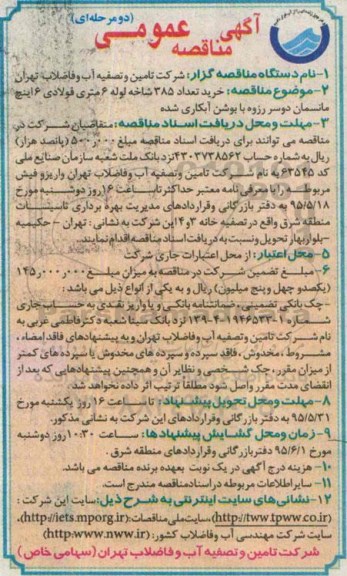 آگهی مناقصه عمومی (دو مرحله‌ای)
۱-نام دستگاه مناقصه گزار: شرکت تامین و تصفیه آب و فاضلاب تهران
۲-موضوع مناقصه: خرید تعداد ۳۸۵ شاخه لوله ۶ متری فولادی ۶ اینچ
مانسمان دوسر رزوه با بوشن آبکاری شده
۳-مهلت و محل دریافت اسناد مناقصه: متقاضیان شرکت در
مناقصه می توانند برای دریافت اسناد مناقصه مبلغ ۵۰۰/۰۰۰ (پانصد هزار)
ریال به شماره حساب ۴۳۰۳۷۳۸۵۶۲ نزد بانک ملت شعبه سازمان صنایع ملی
کد ۶۳۵۴۵ به نام شرکت تامین و تصفیه آب و فاضلاب تهران واریز و فیش
مربوطه را با معرفی نامه معتبر حداکثر تا ساعت ۱۶ روز دوشنبه مورخ
۹۵/۵/۱۸ به دفتر بازرگانی و قراردادهای مدیریت بهره برداری تاسیسات
منطقه شرق واقع در تصفیه خانه ۳ و ۴ این شرکت به نشانی: تهران - حکیمیه
-بلوار بهار تحویل و نسبت به دریافت اسناد مناقصه اقدام نمایند.
۵-محل اعتبار: از محل اعتبارات جاری شرکت
۶-مبلغ تضمین شرکت در مناقصه به میزان مبلغ ۱۴۵/۰۰۰/۰۰۰
(یکصد و چهل و پنج میلیون) ریال و به یکی از انواع ذیل می باشد:
-چک بانکی تضمینی، ضمانتنامه بانکی و یا واریز نقدی به حساب جاری
شماره ۱-۱۹۴۶۵۳۳-۴-۱۳۹ نزد بانک سینا شعبه دکتر فاطمی غربی به
نام شرکت تامین و تصفیه آب و فاضلاب تهران و به پیشنهادهای فاقد امضاء،
مشروط، مخدوش، فاقد سپرده و سپرده های مخدوش یا سپرده های کمتر
از میزان مقرر، چک شخصی و نظایر آن و همچنین پیشنهادهایی که بعد از
انقضای مدت مقرر واصل شود مطلقا ترتیب اثر داده نخواهد شد.
۸-مهلت و محل تحویل پیشنهاد: تا ساعت ۱۶ روز یکشنبه مورخ
۹۵/۵/۳۱ به دفتر بازرگانی و قراردادهای این شرکت به نشانی مذکور.
۹-زمان و محل گشایش پیشنهاد ها: ساعت ۱۰:۳۰ روز دوشنبه
مورخ ۹۵/۶/۱ دفتر بازرگانی و قراردادهای منطقه شرق.
۱۰-هزینه درج آگهی در یک نوبت بعهده برنده مناقصه می باشد.
۱۱-سایر اطلاعات مربوطه در اسناد مناقصه مندرج است.
۱۲-نشانی های سایت اینترنتی به شرح ذیل: سایت این شرکت:
(http://tww.tpww.co.ir)، سایت ملی مناقصات: (http://iets.mporg.ir)،
سایت شرکت مهندسی آب و فاضلاب کشور: (http:www.nww.ir)
شرکت تامین و تصفیه آب و فاضلاب تهران (سهامی خاص)